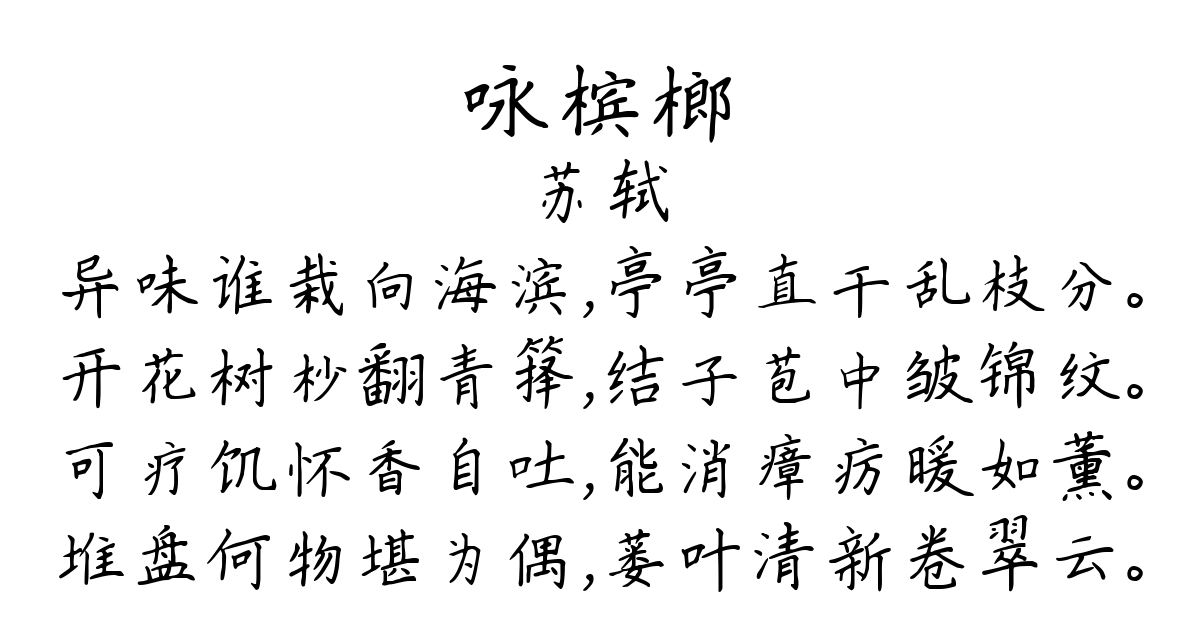 咏槟榔
苏轼
异味谁栽向海滨,亭亭直干乱枝分。
开花树杪翻青箨,结子苞中皱锦纹。
可疗饥怀香自吐,能消瘴疠暖如薰。
堆盘何物堪为偶,蒌叶清新卷翠云。